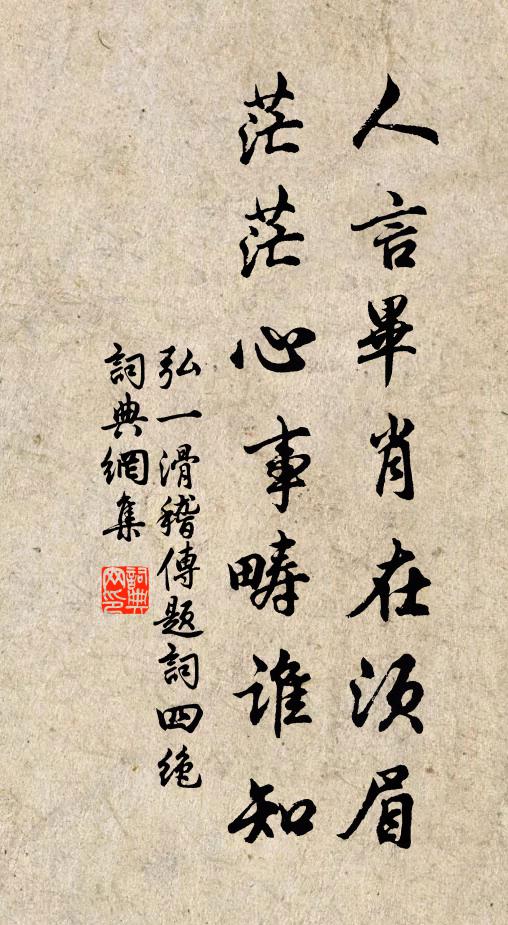 人言畢肖在須眉
茫茫心事疇誰知
弘一滑稽傳題詞四絶
詞典網集
詞典網印